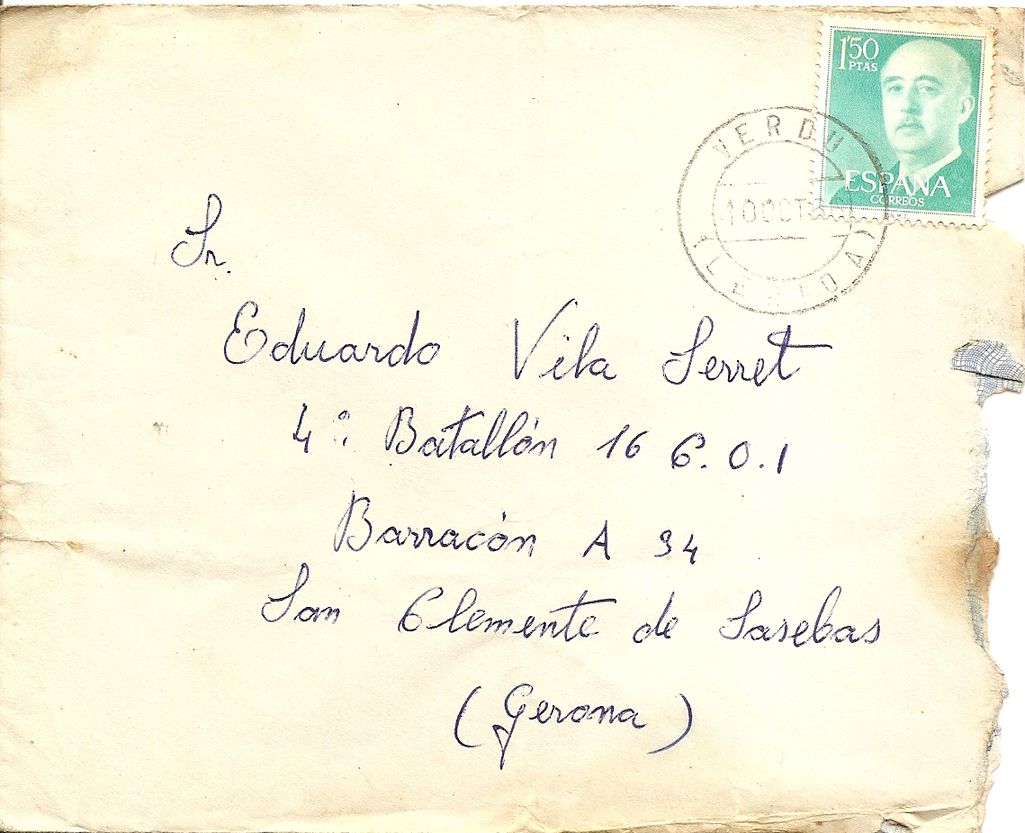 1'50
PTAS
ESPAÑA
CORREOS
VERDU
10 OCT
(LERIDA)
Sr.
Eduardo Vila Serret
4º: Batallón 16 C.O.I
Barracón A 34
San Clemente de Sasebas
(Gerona)